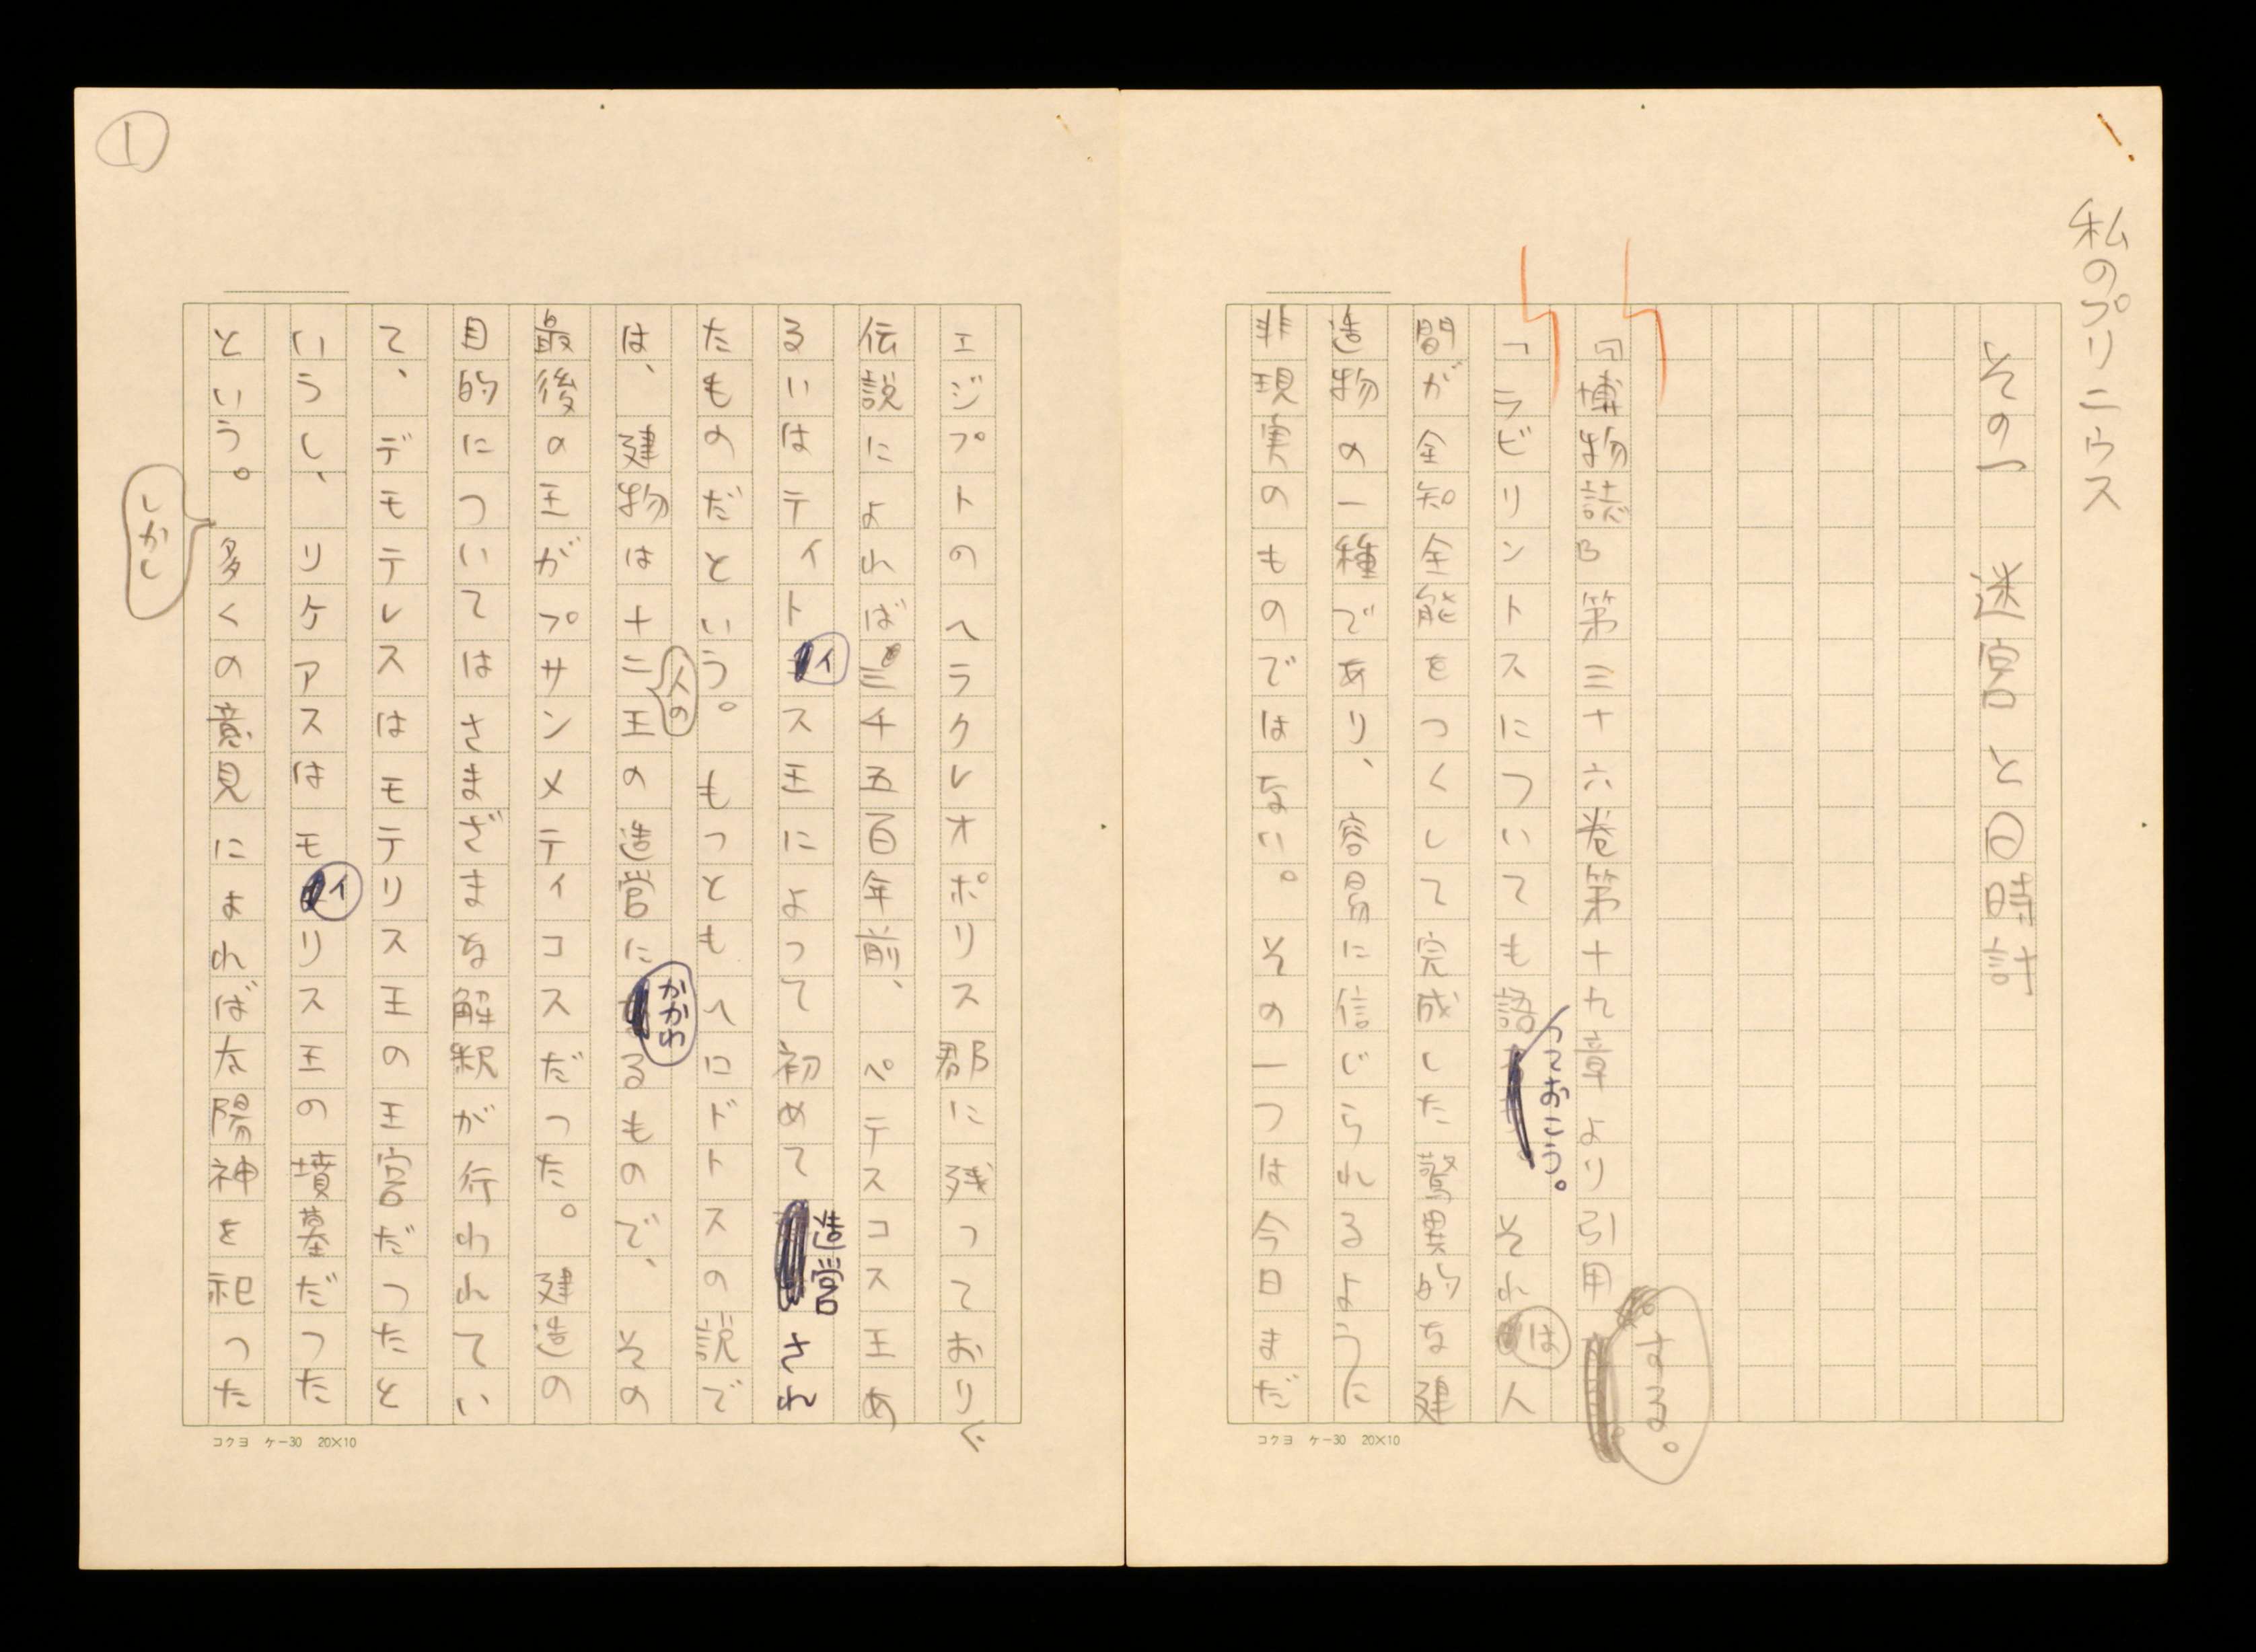 私のプリニウス
その一　迷宮と日時計
『博物誌』第三十六巻第十九章より引用する。
「ラビリントスについても語っておこう。それは人
間が全知全能をつくして完成した驚異的な建
造物の一種であり、容易に信じられるように
非現実のものではない。その一つは今日まだ
コクヨ　ケー30　20×10
エジプトのヘラクレオポリス郡に残っており、
伝説によれば三千五百年前、ペテスコス王あ
るいはティトイス王によって初めて造営され
たものだという。もっともヘロドトスの説で
は、建物は十二人の王の造営にかかわるもので、その
最後の王がプサンメティコスだった。建造の
目的についてはさまざまな解釈が行われてい
て、デモテレスはモテリス王の王宮だったと
いうし、リケアスはモイリス王の墳墓だった
という。しかし多くの意見によれば太陽神を祀った
コクヨ　ケー30　20×10
①